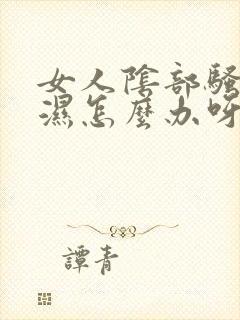 女人陰部騷
濕怎麼办呀
譚青